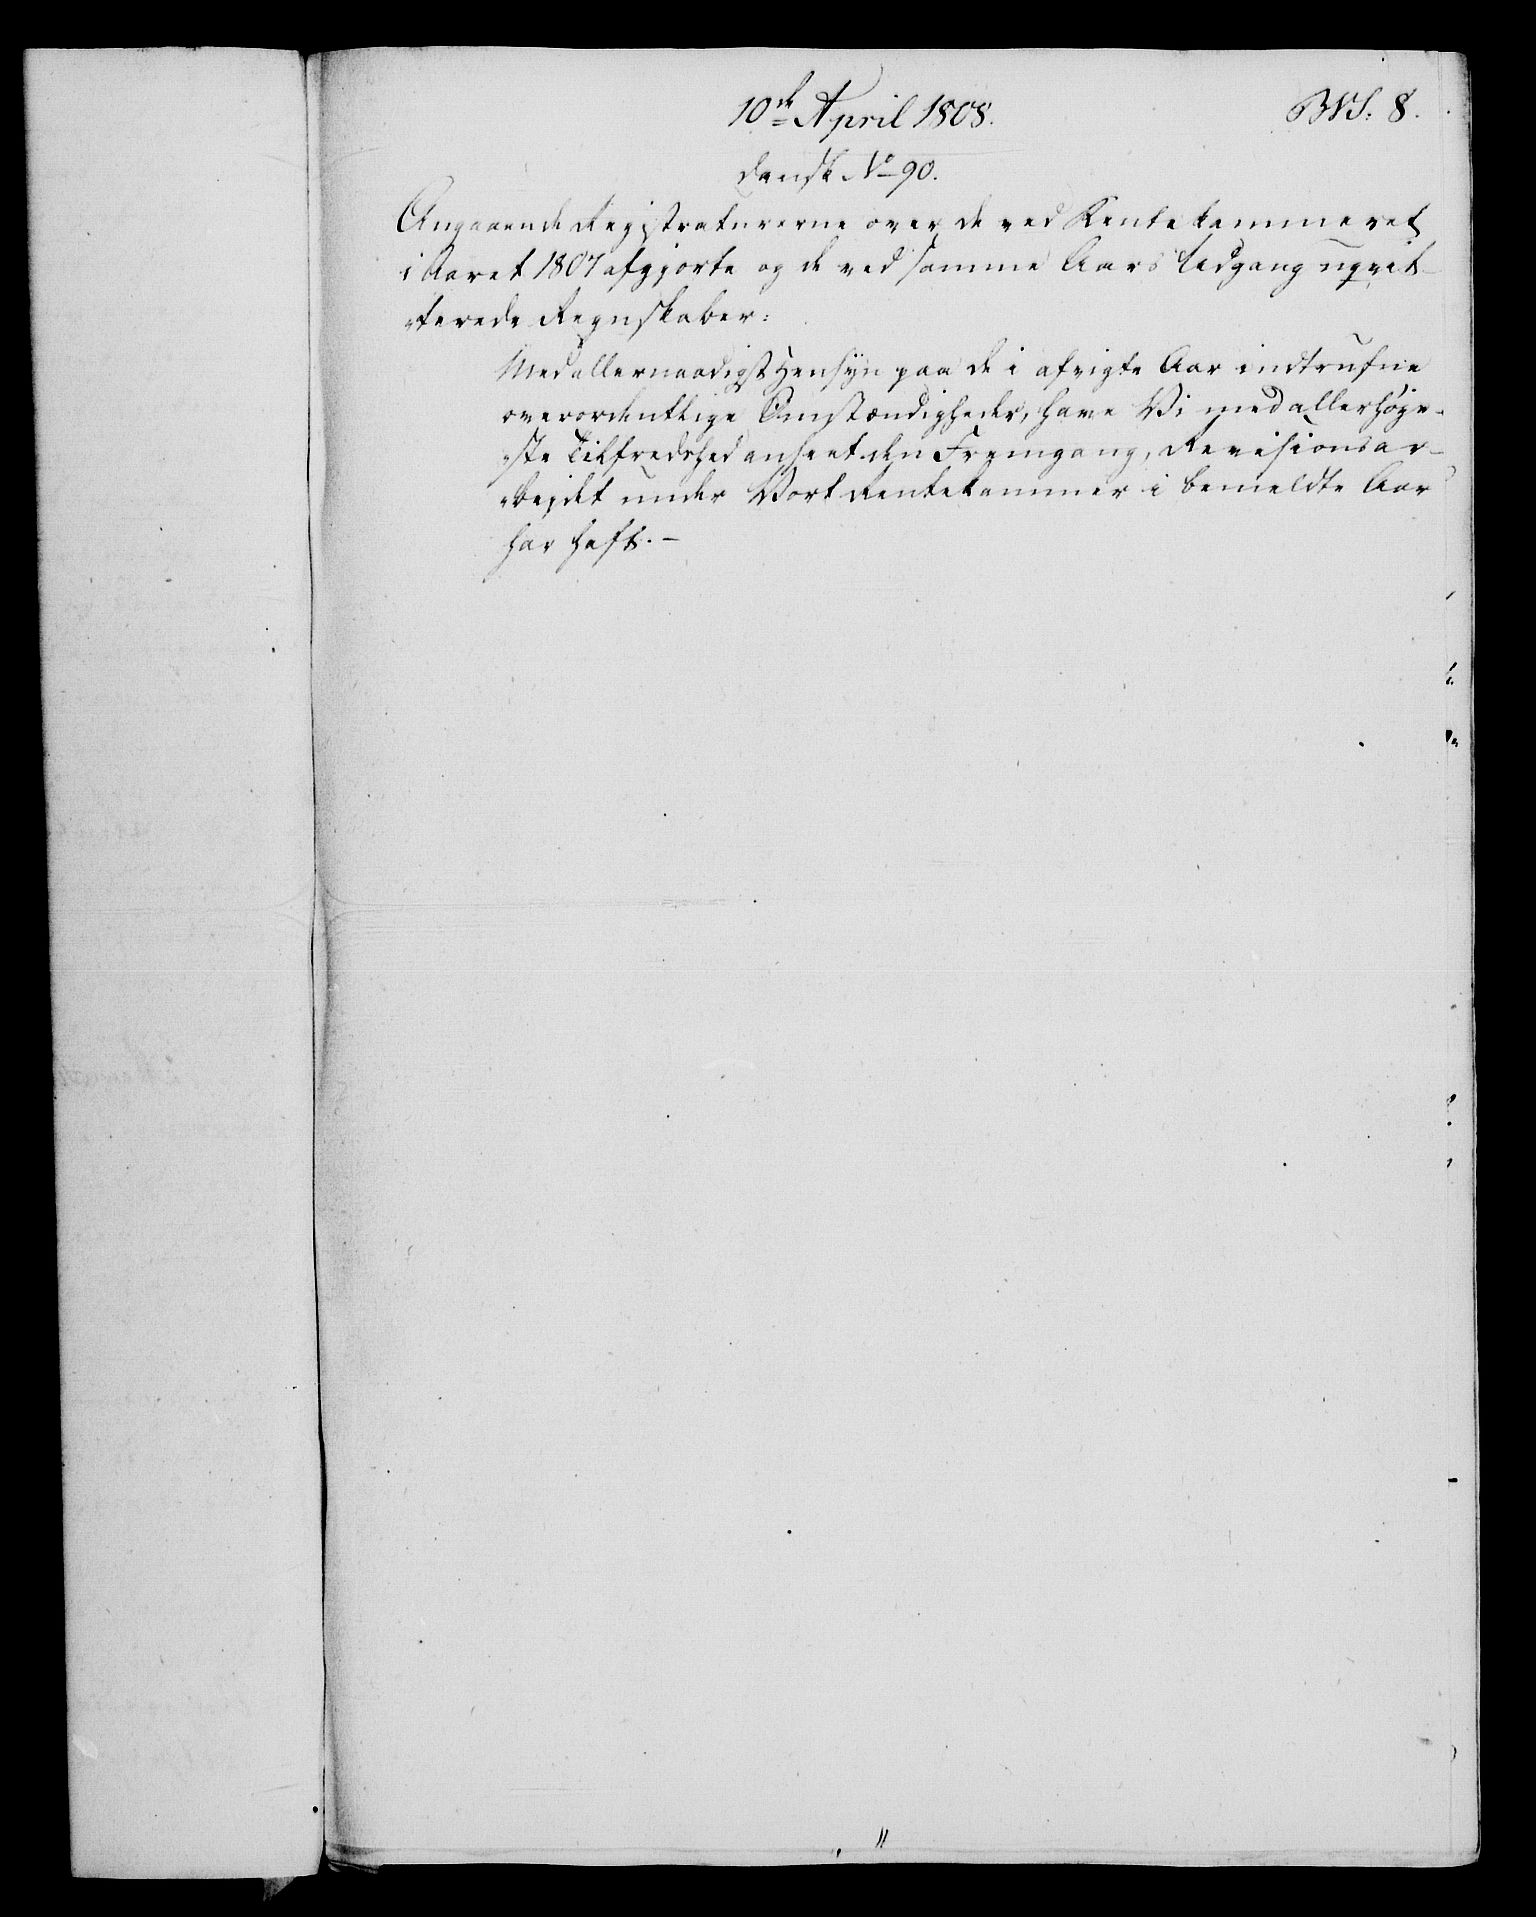 10de April 1808.
dansk No 90.
Angaaende Registraturerne over de ved Rentekammeret
i Aaret 1807 afgjorte og de ved samme Aars Udgang uqvit-
"terede Regnskaber:
Med allernaadigst Hensyn paa de i afvigte Aar indtrufne
overordentlige Omstændigheder, have Vi med allerhöje-
"ste Tilfredshed anseet den Fremgang, Revisionsar-
"bejdet under Vort Rentekammer i bemeldte Aar
har haft. -